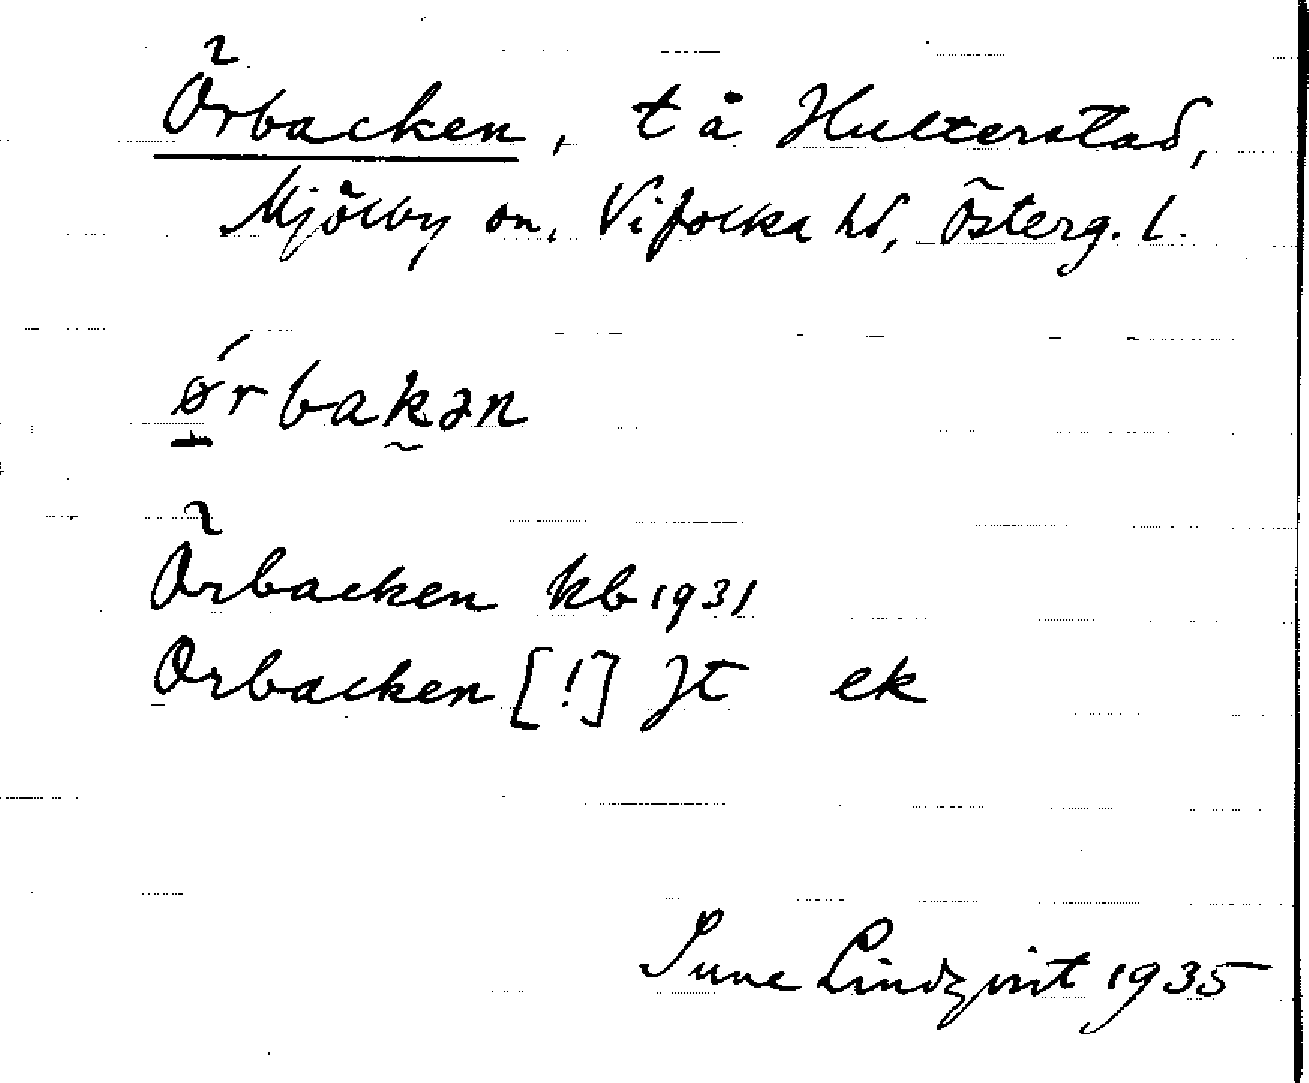 Örbacken, t å Hulterstad,
Mjölby sn, Vifolka hd, Österg. l.
ørbakən
Örbacken kb 1931
Orbacken [!] Jt ek
Sune Lindqvist 1935